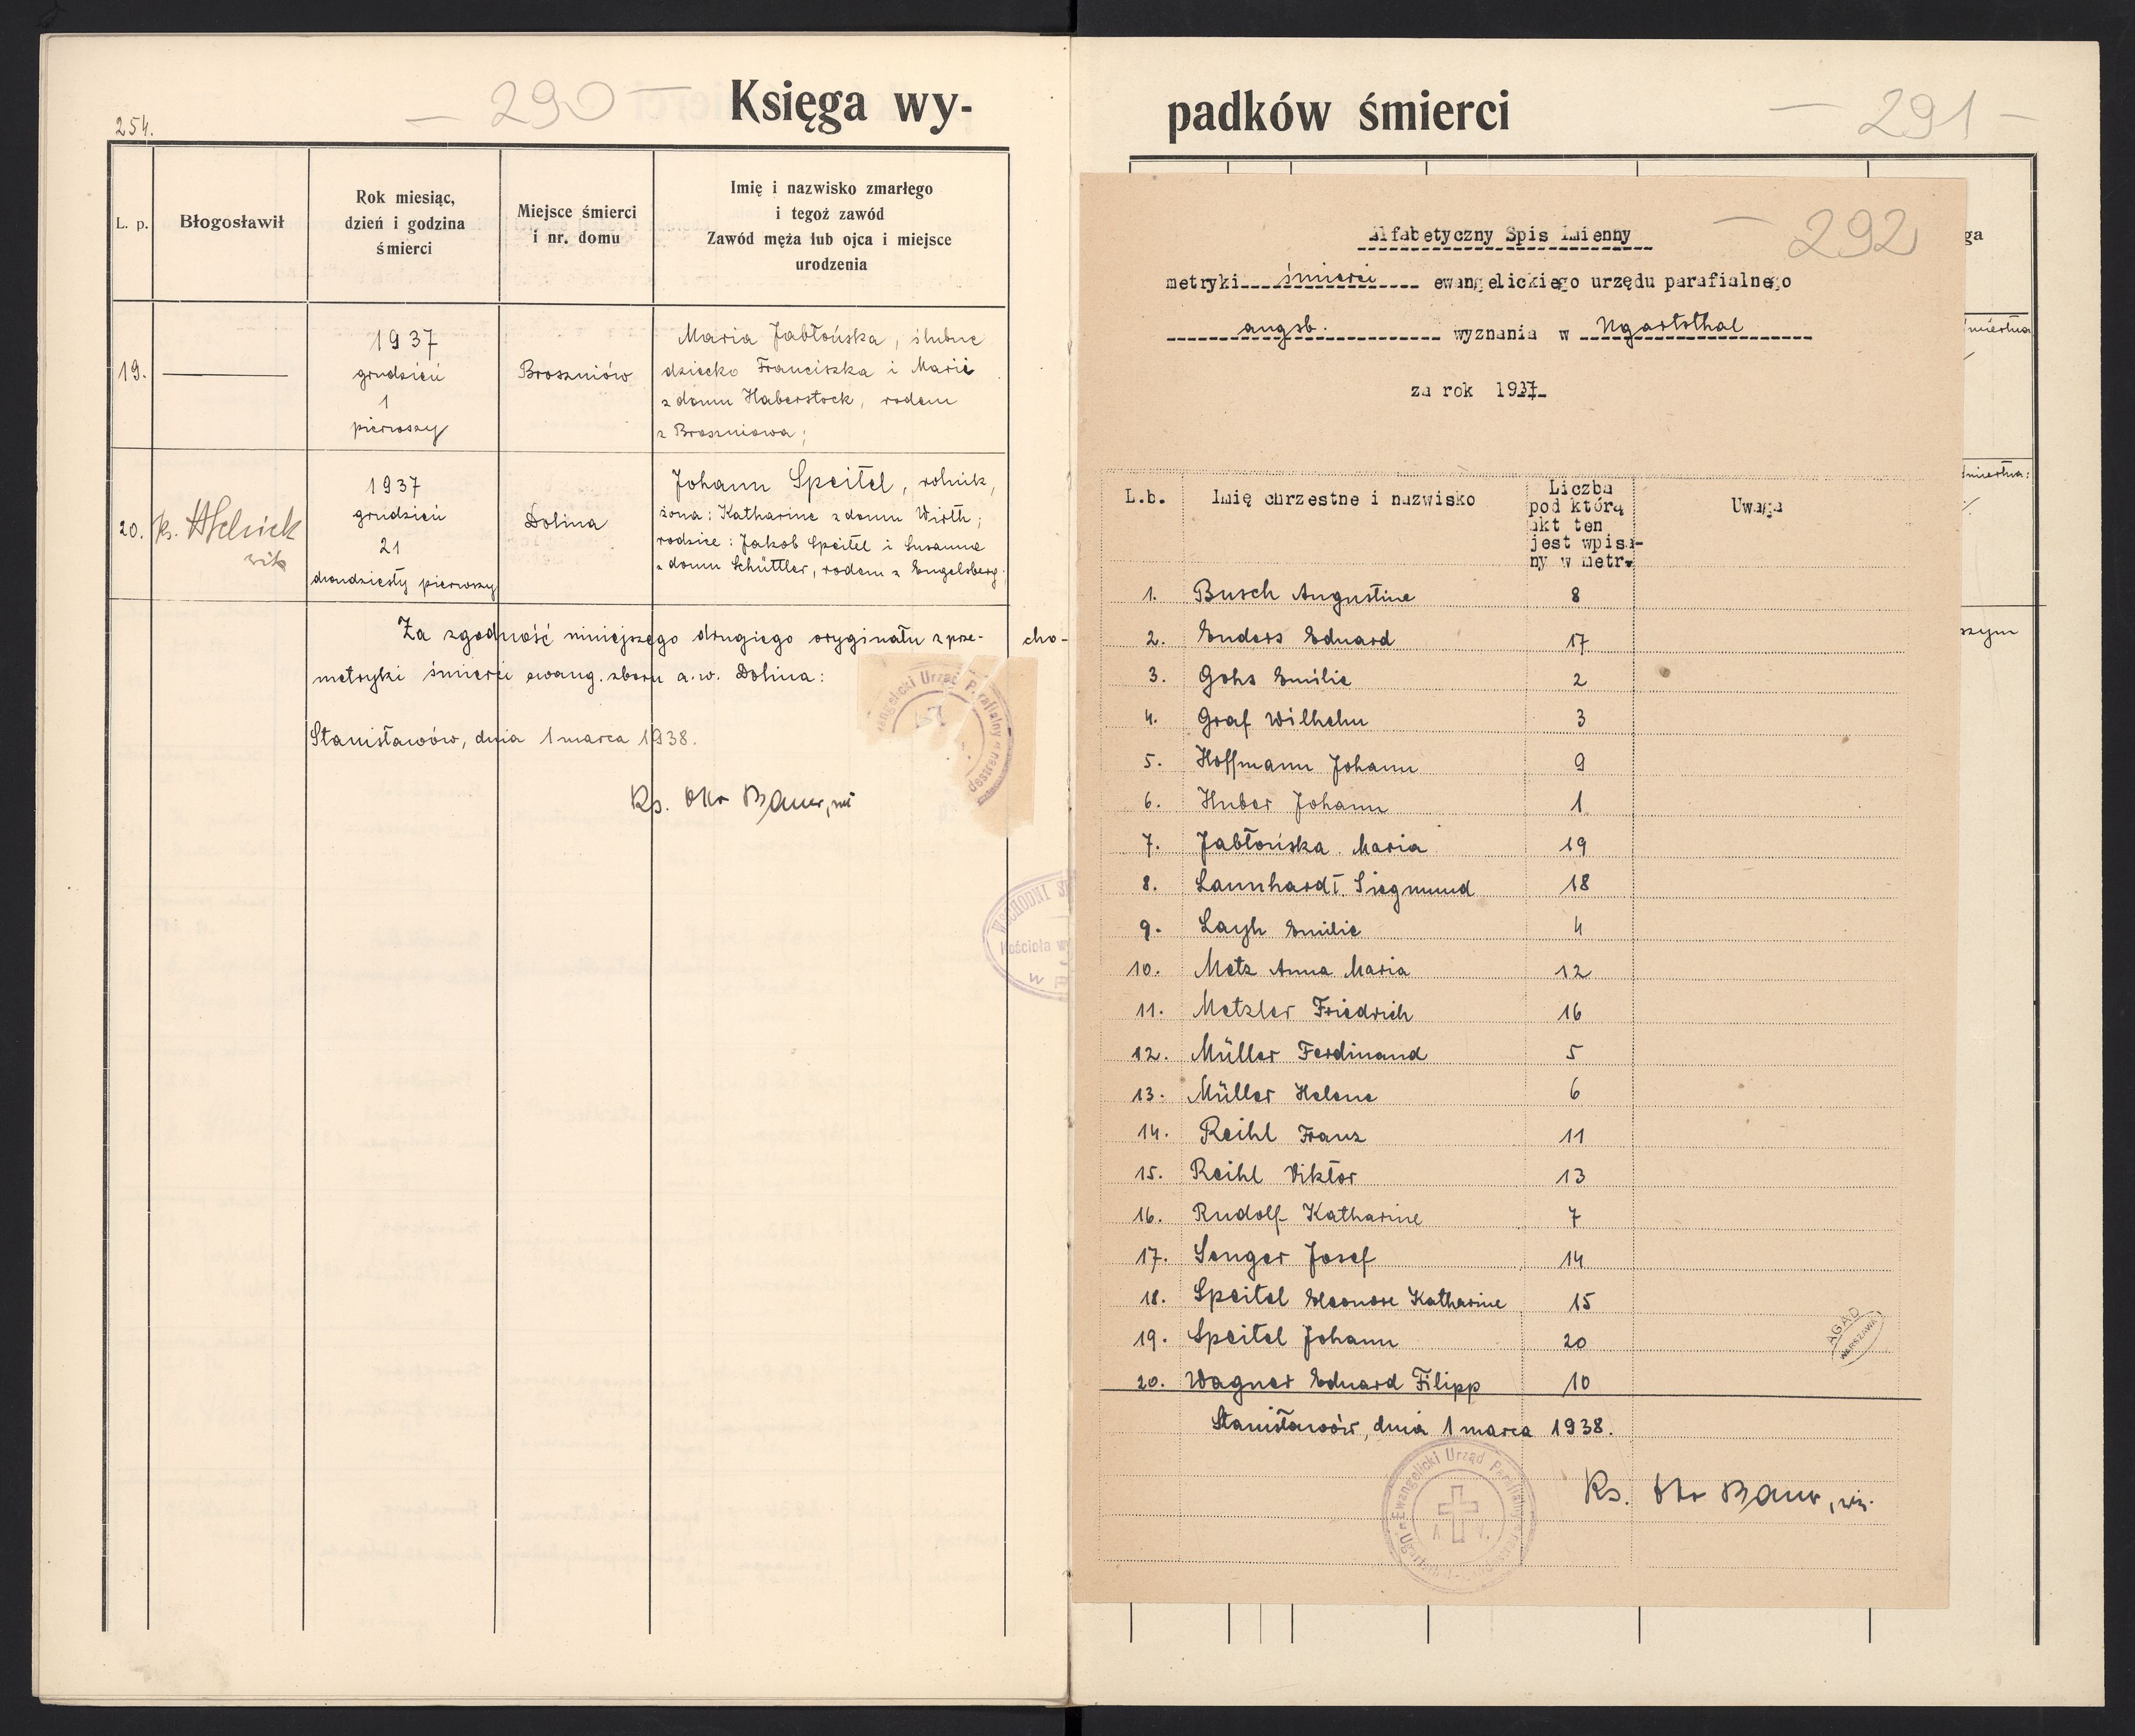 — 290 —
Księga wy-
254.
L. p.
Błogosławił
Rok miesiąc,
dzień i godzina
śmierci
Miejsce śmierci
i nr. domu
Imię i nazwisko zmarłego
i tegoż zawód
Zawód męża lub ojca i miejsce
urodzenia
19.
1937
grudzień
1
pierwszy
Broszniów
Maria Jabłońska, ślubne
dziecko Franciszka i Marie
z domu Haberstock, rodem
z Broszniowa;
20.
ks.
wik
1937
grudzień
21
dwudziesty pierwszy
Dolina
Johann Speitel, rolnik,
żona: Katharine z domu Wirth;
rodzice: Jakob Speitel i Susanna
z domu Schüttler, rodem z Engelsberg;
Za zgodność niniejszego drugiego oryginału z prze- cho-
metryki śmierci ewang. zboru a.w. Dolina:
Stanisławów, dnia 1 marca 1938.
Ks. Bauer,
angelicki Urząd Parafialny w
WSCHODNI
Kościoła
w
padków śmierci
— 291 —
ga
śmiertna
śmiertna:
szym
— 292
Alfabetyczny Spis Imienny
metryki śmierci ewangelickiego urzędu parafialnego
augsb. wyznania w Ugartsthal
za rok 1937
L.b.
Imię chrzestne i nazwisko
Liczba
pod którą
akt ten
jest wpisa-
ny w metr.
Uwaga
1. Busch Augustine 8
2. Enders Eduard 17
3. Gohs Emilie 2
4. Graf Wilhelm 3
5. Hoffmann Johann 9
6. Huber Johann 1
7. Jabłońska Maria 19
8. Launhardt Siegmund 18
9. Layh Emilie 4
10. Metz Anna Maria 12
11. Metzler Friedrich 16
12. Müller Ferdinand 5
13. Müller Helene 6
14. Reihl Franz 11
15. Reihl Viktor 13
16. Rudolf Katharine 7
17. Senger Josef 14
18. Speitel Eleonore Katharine 15
19. Speitel Johann 20
20. Wagner Eduard Filipp 10
AGAD
WARSZAWA
Stanisławów, dnia 1 marca 1938.
Ewangelicki Urząd Parafialny
Ks. Bauer,